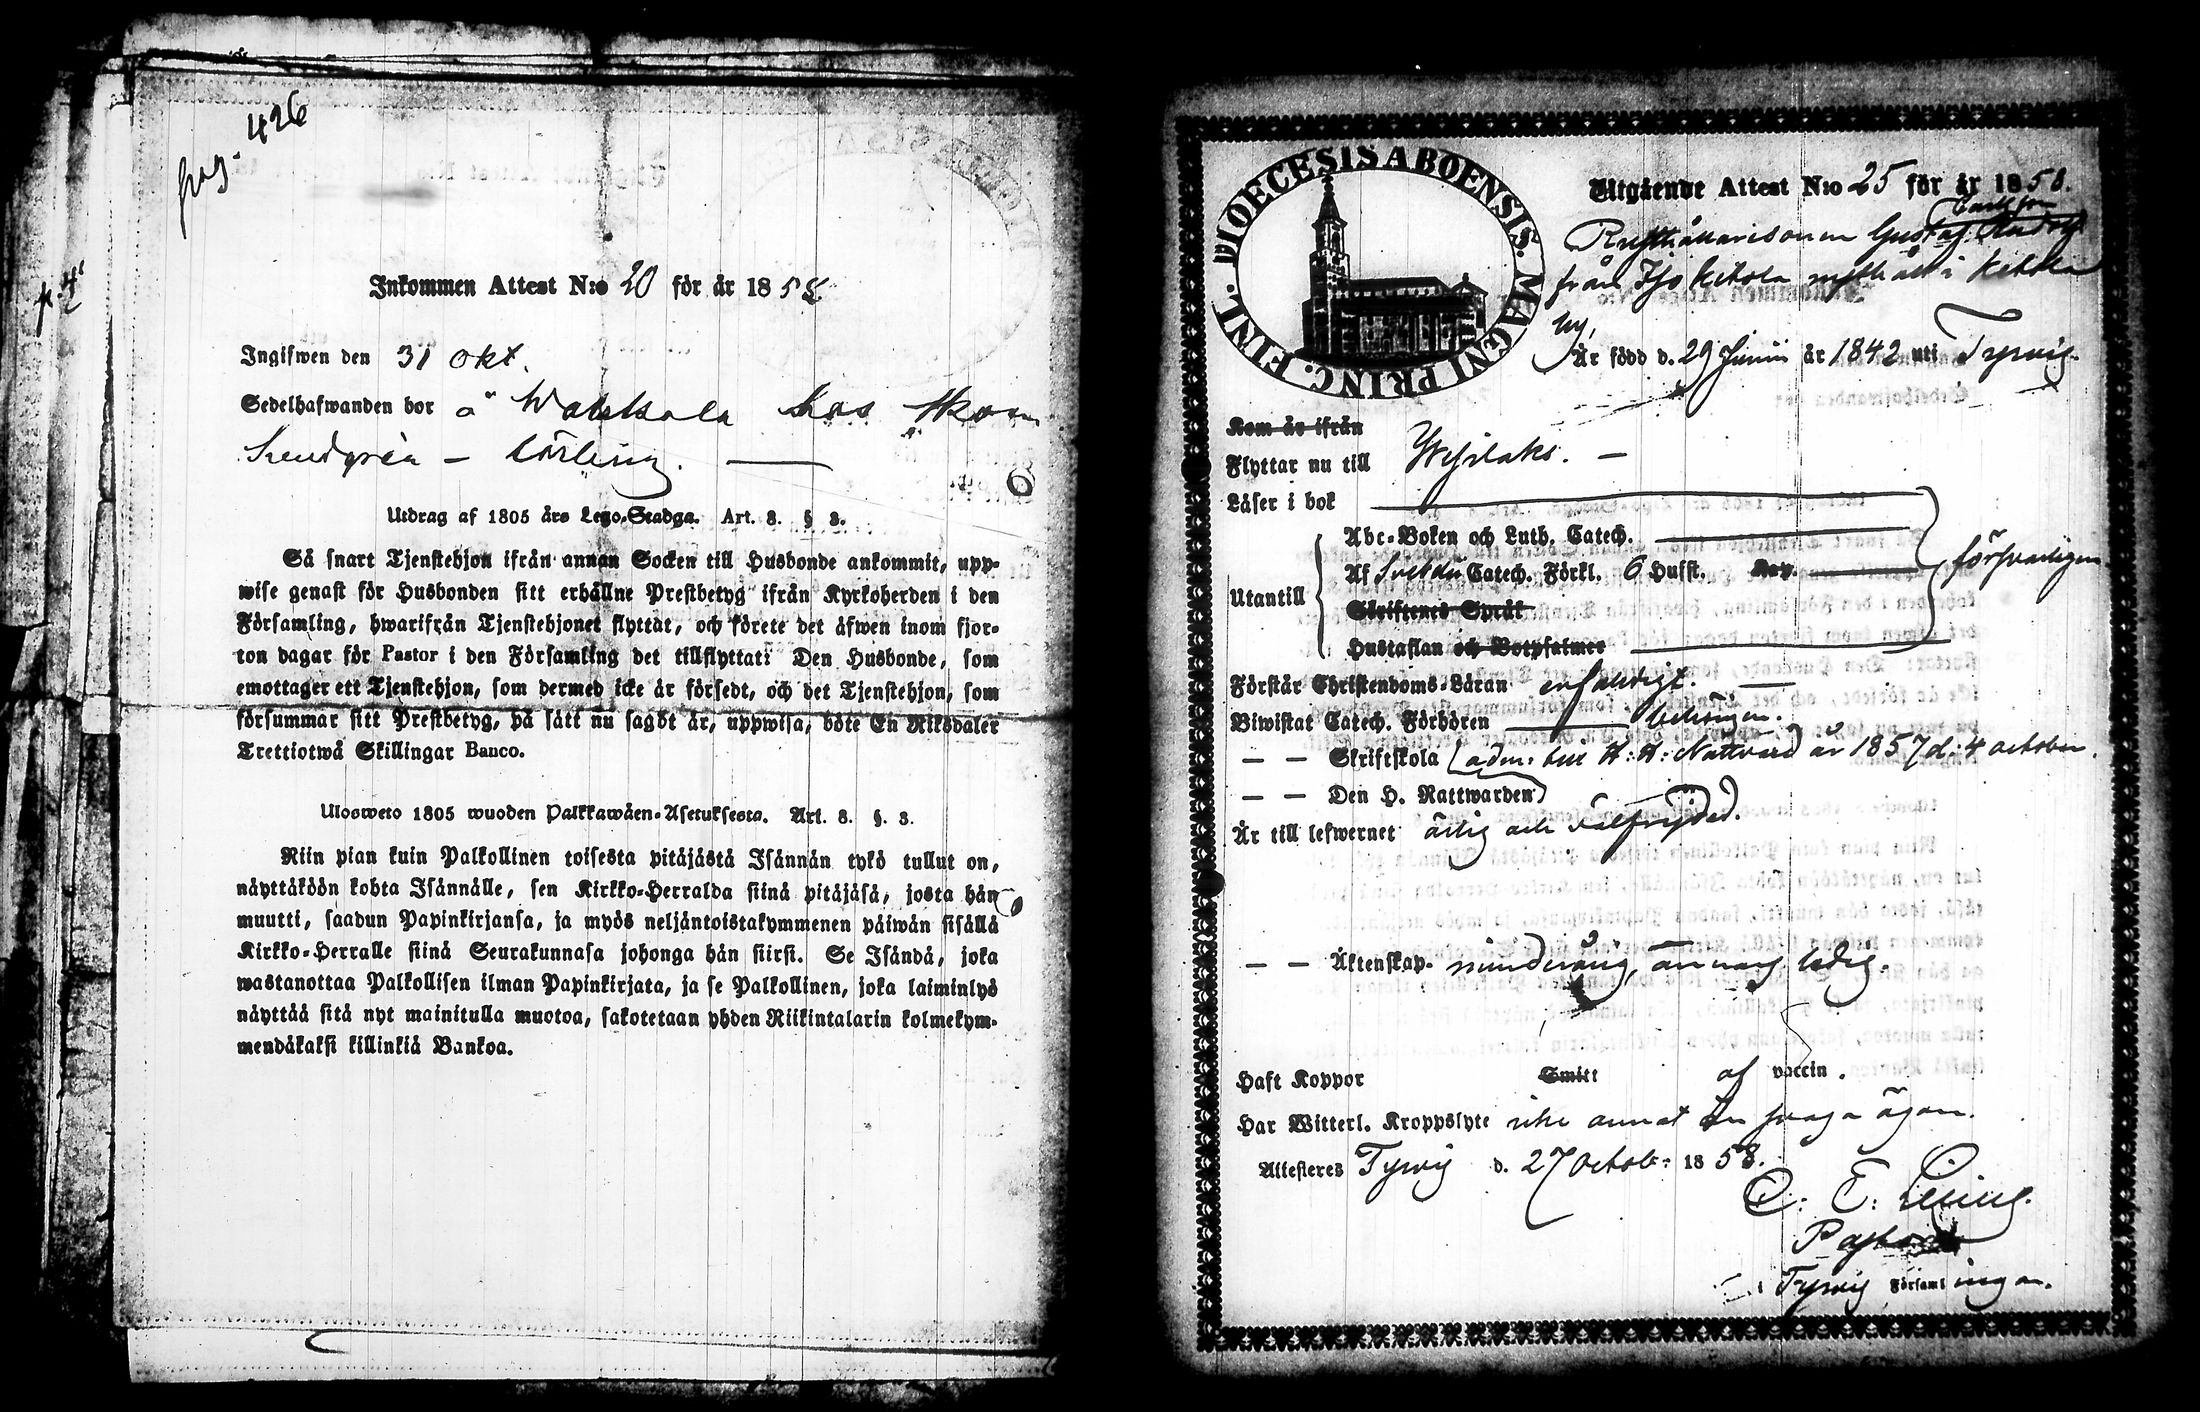 pag. 426
p. 4
Inkommen Attest N:o 20 för år 1858
Ingifwen den 31 okt.
Sedelhafwanden bor å hos
Utdrag af 1805 års Lego-Stadga. Art. 8. § 3.
Så snart Tjenstehjon ifrån annan Socken till Husbonde ankommit, upp-
wise genast för Husbonden sitt erhållne Prestbetyg ifrån Kyrkoherden i den
Församling, hwarifrån Tjenstehjonet flyttat, och förete det äfwen inom fjor-
ton dagar för Pastor i den Församling det tillflyttat: Den Husbonde, som
emottager ett Tjenstehjon, som dermed icke är försedt, och det Tjenstehjon, som
försummar sitt Prestbetyg, på sätt nu sagdt är, uppwisa, böte En Riksdaler
Trettiotwå Skillingar Banco.
Ulosweto 1805 wuoden Palkkawäen-Asetuksesta. Art. 8. §. 3.
Niin pian kuin Palkollinen toisesta pitäjästä Isännän tykö tullut on,
näyttäköön kohta Isännälle, sen Kirkko-Herralda siinä pitäjäsä, josta hän
muutti, saadun Papinkirjansa, ja myös neljäntoistakymmenen päiwän sisällä
Kirkko-Herralle siinä Seurakunnasa johonga hän siirsi. Se Isändä, joka
wastanottaa Palkollisen ilman Papinkirjata, ja se Palkollinen, joka laiminlyö
näyttää sitä nyt mainitulla muotoa, sakotetaan yhden Riikintalarin kolmekym-
mendäkaksi killinkiä Bankoa.
DIOECESIS ABOENSIS. MAGNI PRINC. FINL.
Utgående Attest N:o 25 för år 1858.
Rusthållarsonen Gustaf
från rusthåll i Ketola
by,
Är född d. 29 Junii år 1842 uti Tyrvis.
Kom är ifrån
Flyttar nu till
Läser i bok
Abc-Boken och Luth. Catech.
Utantill Af Svebelii Catech. Förkl. 6 Hufst. Kap. försvarligen
Skriftenes Språk
Hustaflan och Botpsalmer
Förstår Christendoms-Läran enfaldigt.
Biwistat Catech. Förhören behörigen.
— — Skriftskola adm: till H: H: Nattvard år 1857 d. 4 october.
— — Den H. Nattwarden
Är till lefwernet ärlig och välfrejdad.
— — Äktenskap. minderårig, annars ledig.
Haft Koppor Smitt af vaccin.
Har Witterl. Kroppslyte icke annat än svaga ögon.
Attesteres Tyrvis d. 27 Octob: 1858.
Pastor
i Tyrvis Församlingar.